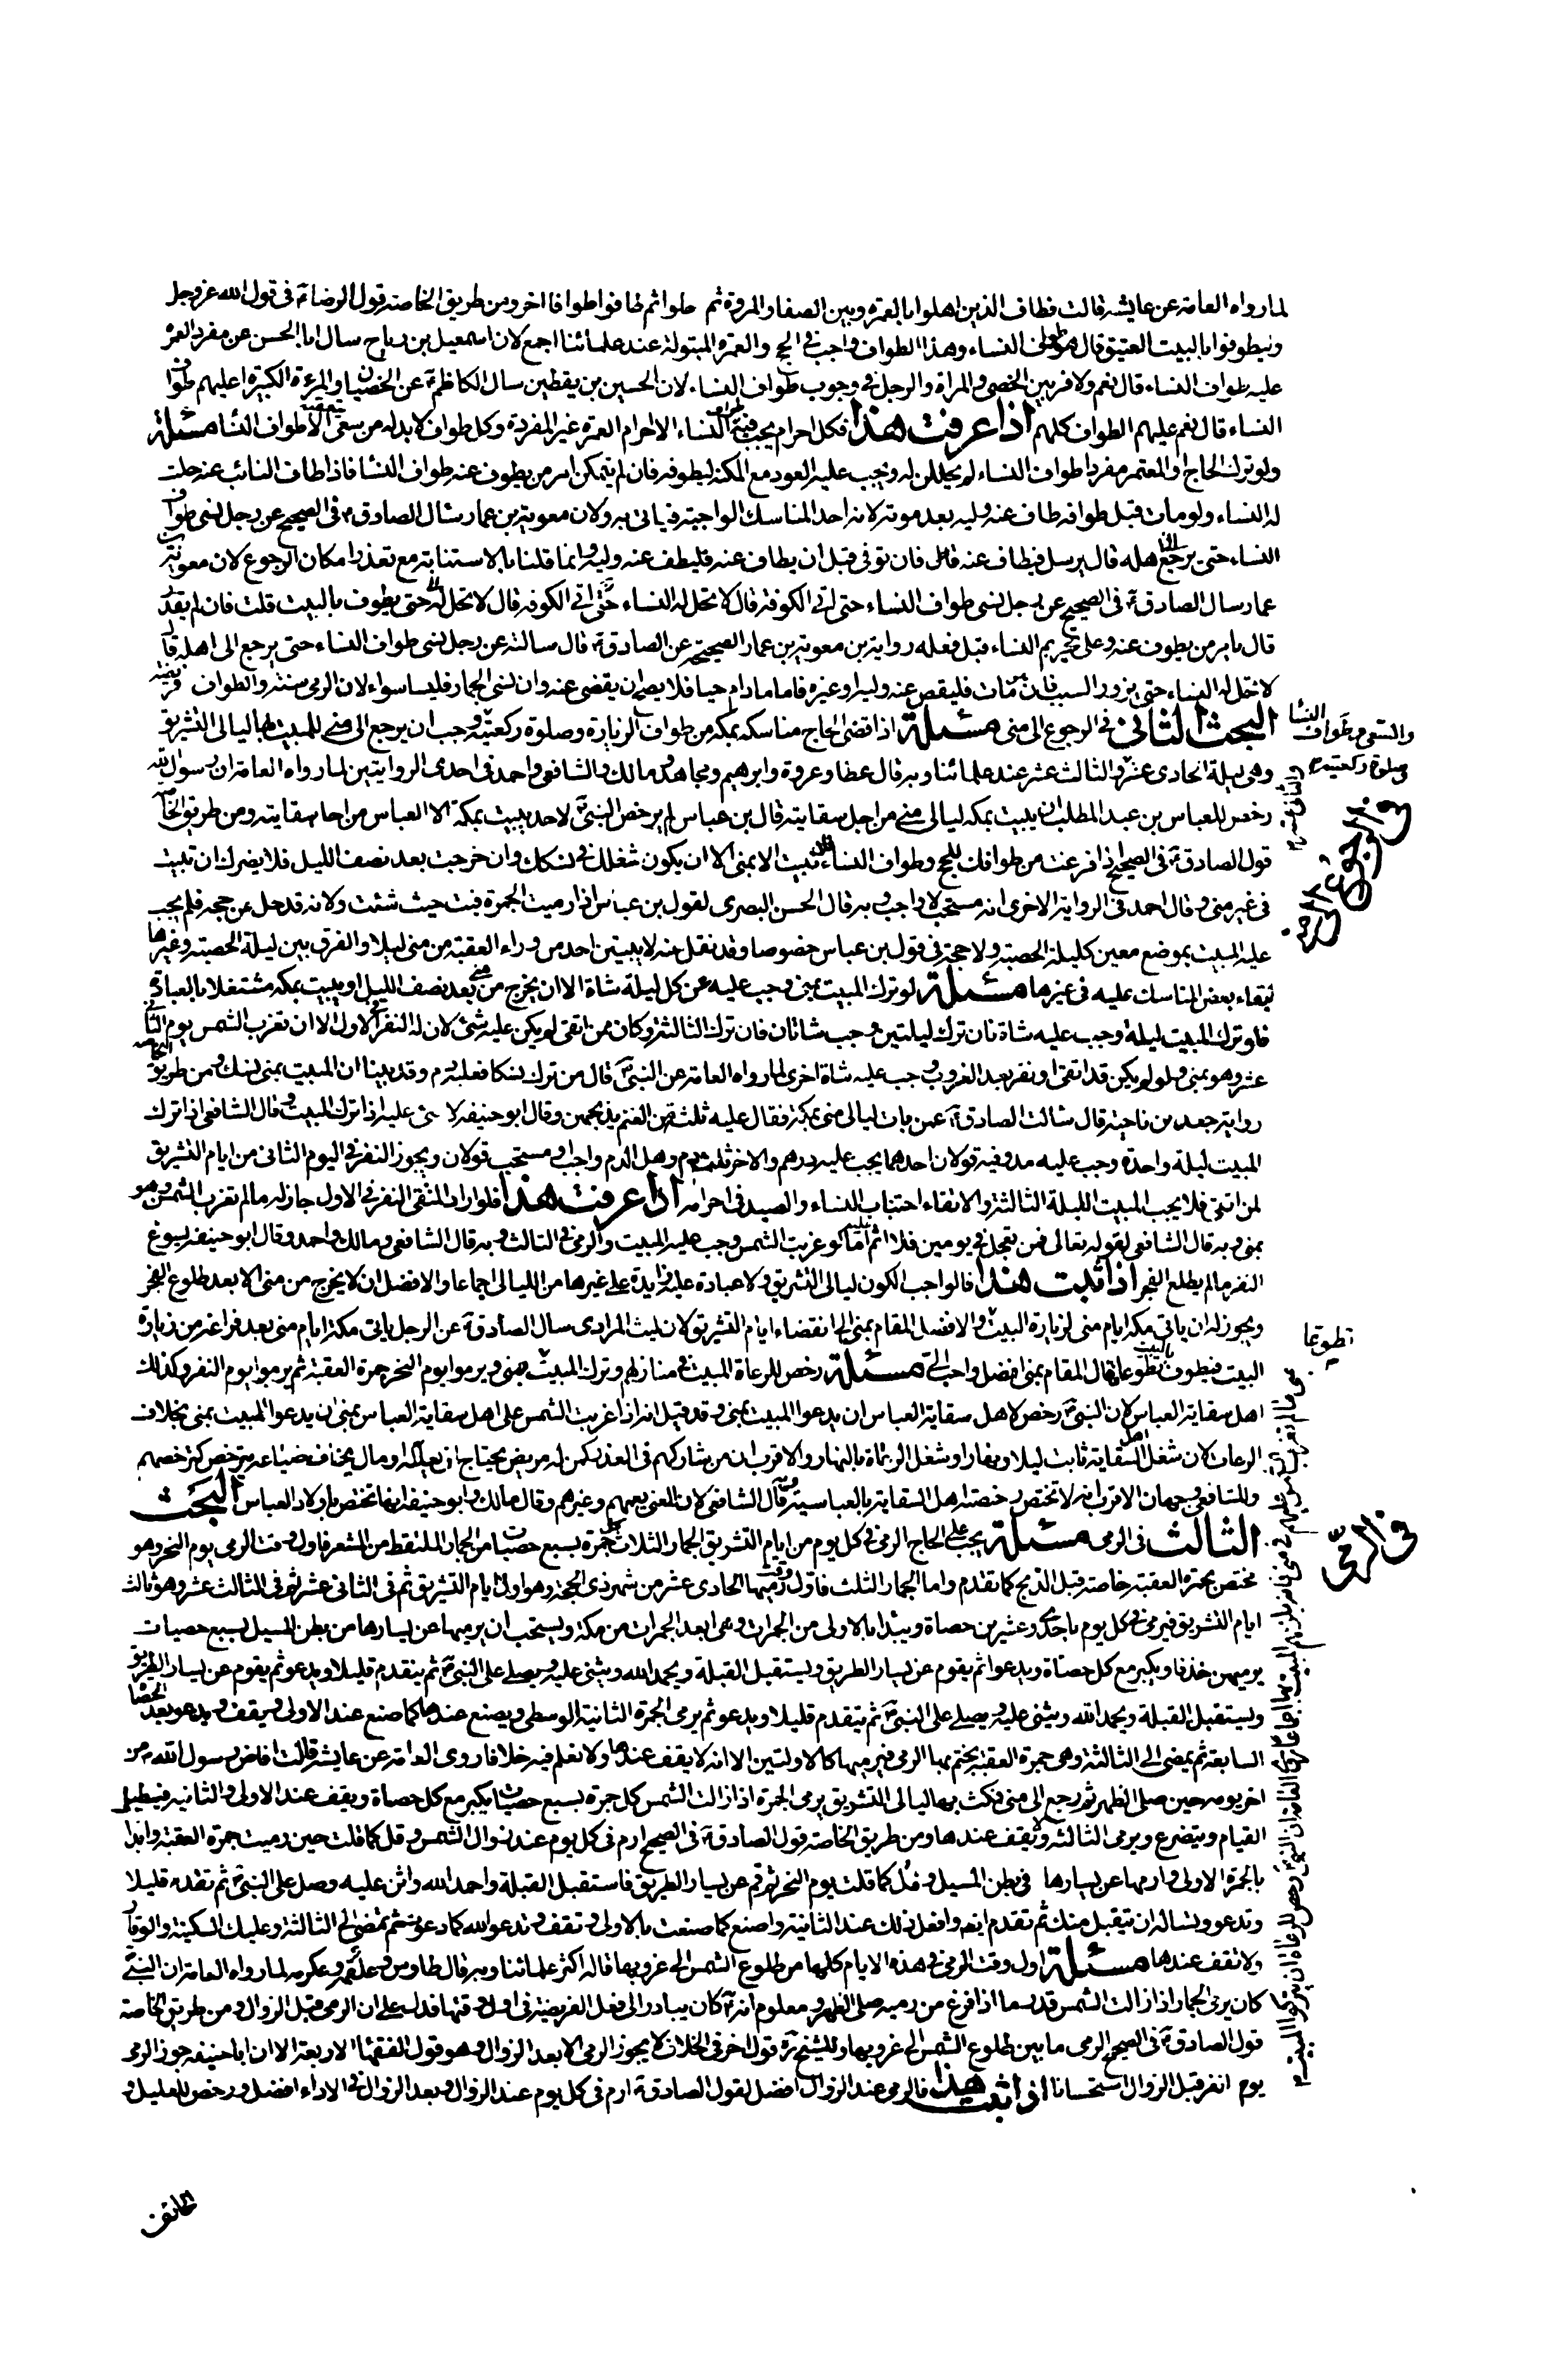 لما رواه العامة عن عايشه قالت فطاف الذين اهلوا بالعمرة وبين الصفا والمروة ثم حلوا ثم طافوا طوافا اخر ومن طريق الخاصة قول الرضاء فى قول الله عز وجل
وليطوفوا بالبيت العتيق قال هو طواف النساء وهذا الطواف واجب فى الحج والعمرة المبتولة عند علمائنا اجمع لان اسمعيل بن رباح سال ابا الحسن عن مفرد العمرة
عليه طواف النساء قال نعم ولا فرق بين الخصى والمراة والرجل فى وجوب طواف النساء لان الحسين بن يقطين سال الكاظم عن الخصيان والمرءة الكبيرة اعليهم طواف
النساء قال نعم عليهم الطواف كلهم اذا عرفت هذا فكل احرام يجب فيه طواف النساء الا احرام العمرة غير المفردة وكل طواف لابد له من سعى الا طواف النسا مسئلة
ولو ترك الحاج او المعتمر مفردا طواف النساء لم يحللن له ويجب عليه العود مع المكنة ليطوفه فان لم يتمكن امر من يطوف عنه طواف النسا فاذا طاف النائب عنه حلت
له النساء ولو مات قبل طوافه طاف عنه وليه بعد موته لانه احد المناسك الواجبة فياتى به ولان معوية بن عمار سئال الصادق فى الصحيح عن رجل نسى طواف
النساء حتى يرجع الى اهله قال يرسل فيطاف عنه فان توفى قبل ان يطاف عنه فليطف عنه وليه وانما قلنا بالاستنابة مع تعذر امكان الرجوع لان معوية بن
عمار سال الصادق فى الصحيح عن رجل نسى طواف النساء حتى اتى الكوفة قال لا تحل له النساء حتى يطوف بالبيت قلت فان لم يقدر
قال يامر من يطوف عنه وعلى تحريم النساء قبل فعله رواية بن معوية بن عمار الصحيحة عن الصادق قال سالته عن رجل نسى طواف النساء حتى يرجع الى اهله قال
لا تحل له النساء حتى يزور البيت فان مات فليقض عنه وليه او غيره فاما ما دام حيا فلا يصلح ان يقضى عنه وان نسى الجمار فليسا سواء لان الرمى سنة والطواف فريضة
البحث الثانى فى الرجوع الى منى مسئلة اذا قضى الحاج مناسكه بمكة من طواف الزيارة وصلوة ركعتيه وجب ان يرجع الى منى للمبيت بها ليالى التشريق
وهى ليلة الحادى عشر والثانى عشر والثالث عشر عند علمائنا وبه قال عطا وعروة وابرهيم ومجاهد ومالك والشافعى واحمد فى احدى الروايتين لما رواه العامة ان رسول الله
رخص للعباس بن عبد المطلب ان يبيت بمكه ليالى منى من اجل سقايته قال بن عباس لم يرخص النبى لاحد يبيت بمكة الا العباس من اجل سقايته ومن طريق الخاصة
قول الصادق فى الصحيح اذا فرغت من طوافك للحج وطواف النساء فلا تبيت الا بمنى الا ان يكون شغلك فى نسكك وان خرجت بعد نصف الليل فلا يضرك ان تبيت
فى غير منى وقال احمد فى الرواية الاخرى انه مستحب لا واجب وبه قال الحسن البصرى لقول بن عباس اذا رميت الجمرة فبت حيث شئت ولانه قد حل عن حجه فلم يجب
عليه المبيت بموضع معين كليلة الحصبة ولا حجة فى قول بن عباس خصوصا وقد نقل عنه لا يبيتن احد من وراء العقبة من منى ليلا والفرق بين ليلة الحصبة وغيرها
لبقاء بعض المناسك عليه فى غيرها مسئلة لو ترك المبيت بمنى وجب عليه عن كل ليلة شاة الا ان يخرج من منى بعد نصف الليل او يبيت بمكه مشتغلا بالعبادة
فلو ترك المبيت ليلة وجب عليه شاة فان ترك ليلتين وجب شاتان فان ترك الثالثة وكان ممن اتقى لم يكن عليه شئ لان له النفر الاول الا ان تغرب الشمس يوم الثانى
عشر وهو بمنى ولو لم يكن قد اتقى او نفر بعد الغروب وجب عليه شاة اخرى لما رواه العامة عن النبى قال من ترك نسكا فعليه دم وقد بينا ان المبيت بمنى نسك ومن طريق الخاصة
رواية جعد بن ناجية قال سئالت الصادق عمن بات ليالى منى بمكة فقال عليه ثلثة من الغنم يذبحهن وقال ابو حنيفه لا شئ عليه اذا ترك المبيت وقال الشافعى اذا ترك
المبيت ليلة واحدة وجب عليه مد وفيه قولان احدهما يجب عليه درهم والاخر ثلث دم وهل الدم واجب او مستحب قولان ويجوز النفر فى اليوم الثانى من ايام التشريق
لمن اتقى فلا يجب المبيت الليلة الثالثة والاتقاء اجتناب النساء والصيد فى احرامه اذا عرفت هذا فلو اراد المتقى النفر فى الاول جاز له ما لم تغرب الشمس وهو
بمنى وبه قال الشافعى لقوله تعالى فمن تعجل فى يومين فلا اثم عليه اما لو غربت الشمس وجب عليه المبيت والرمى فى الثالث وبه قال الشافعى ومالك واحمد وقال ابو حنيفه يسوغ
النفر ما لم يطلع الفجر اذا ثبت هذا فالواجب الكون ليالى التشريق ولا عبادة عليه زايدة على غيرها من الليالى اجماعا والافضل ان لا يخرج من منى الا بعد طلوع الفجر
ويجوز له ان ياتى مكة ايام منى لزيارة البيت والافضل المقام بمنى الى انقضاء ايام التشريق لان ليث المرادى سال الصادق عن الرجل ياتى مكة ايام منى بعد فراغه من زيارة
البيت فيطوف بالبيت تطوعا فقال المقام بمنى افضل واحب الى مسئلة رخص للرعاة المبيت فى منازلهم وترك المبيت بمنى ويرموا يوم النحر جمرة العقبة ثم يرموا يوم النفر وكذلك
اهل سقاية العباس لان النبى رخص لاهل سقاية العباس ان يدعوا المبيت بمنى وقد قيل انه اذا غربت الشمس على اهل سقاية العباس بمنى ان يدعوا المبيت بمنى بخلاف
الرعاة لان شغل اهل السقاية ثابت ليلا ونهارا وشغل الرعاة بالنهار والاقرب ان من شاركهم فى العذر كمن له مريض يحتاج ان يعلله او مال يخاف ضياعه يترخص كترخصهم
وللشافعى وجهان الاقرب انه لا تختص رخصة اهل السقاية بالعباسية وبه قال الشافعى لان المعنى يعمهم وغيرهم وقال مالك وابو حنيفه انها تختص باولاد العباس البحث
الثالث فى الرمى مسئلة يجب على الحاج الرمى فى كل يوم من ايام التشريق الجمار الثلاث كل جمرة بسبع حصيات من الجمار الملتقط من المشعر فاول وقت الرمى يوم النحر وهو
مختص بجمرة العقبة خاصة قبل الذبح كما تقدم واما الجمار الثلث فاول وقت رميها الحادى عشر من شهر ذى الحجة وهو اول ايام التشريق ثم فى الثانى عشر ثم فى الثالث عشر وهو ثالث
ايام التشريق فيرمى فى كل يوم باحدى وعشرين حصاة ويبدا بالاولى من الجمرات وهى ابعد الجمرات من مكة ويستحب ان يرميها عن يسارها من بطن المسيل بسبع حصيات
يرميهن خذفا ويكبر مع كل حصاة ويدعوا ثم يقوم عن يسار الطريق ويستقبل القبلة ويحمد الله ويثنى عليه ويصلى على النبى ثم يتقدم قليلا ويدعو ثم يقوم عن يسار الطريق
ويستقبل القبلة ويحمد الله ويثنى عليه ويصلى على النبى ثم يتقدم قليلا ويدعو ثم يرمى الجمرة الثانية الوسطى ويصنع عندها كما صنع عند الاولى ويقف ويدعو بعد الحصاة
السابعة ثم يمضى الى الثالثة وهى جمرة العقبة يختم بها الرمى فيرميها كالاولتين الا انه لا يقف عندها ولا نعلم فيه خلافا روى العامة عن عايشه قالت افاض رسول الله من
اخر يومه حين صلى الظهر ثم رجع الى منى فمكث بها ليالى التشريق يرمى الجمرة اذا زالت الشمس كل جمرة بسبع حصيات يكبر مع كل حصاة ويقف عند الاولى والثانية فيطيل
القيام ويتضرع ويرمى الثالثه ولا يقف عندها ومن طريق الخاصة قول الصادق فى الصحيح ارم فى كل يوم عند زوال الشمس وقل كما قلت حين رميت جمرة العقبة وابدا
بالجمرة الاولى فارمها عن يسارها فى بطن المسيل وقل كما قلت يوم النحر ثم قم عن يسار الطريق فاستقبل القبلة واحمد الله واثن عليه وصل على النبى ثم تقدم قليلا
وتدعو وتساله ان يتقبل منك ثم تقدم ايضا وافعل ذلك عند الثانية واصنع كما صنعت بالاولى وتقف وتدعو الله كما دعوت ثم تمضى الى الثالثة وعليك السكينة والوقار
ولا تقف عندها مسئلة اول وقت الرمى فى هذه الايام كلها من طلوع الشمس الى غروبها قاله اكثر علمائنا وبه قال طاوس وعكرمه لما رواه العامة ان النبى
كان يرمى الجمار اذا زالت الشمس قدر ما اذا فرغ من رميه صلى الظهر ومعلوم انه كان يبادر الى فعل الفريضة فى اول وقتها فدل على ان الرمى قبل الزوال ومن طريق الخاصة
قول الصادق فى الصحيح الرمى ما بين طلوع الشمس الى غروبها وللشيخ ره قول اخر فى الخلاف لا يجوز الرمى الا بعد الزوال وهو قول الفقهاء الاربعة الا ان ابا حنيفه جوز الرمى
يوم النفر قبل الزوال استحسانا اذا ثبت هذا فالرمى عند الزوال افضل لقول الصادق ارم فى كل يوم عند الزوال وبعد الزوال فى الاداء افضل ورخص للعليل و
والسعى وطواف النسا
وصلوة ركعتيه
والثانى عشر
فى الرجوع الى منى
تطوعا
فى الرمى